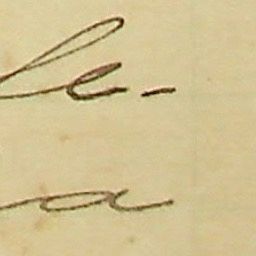 le-
a